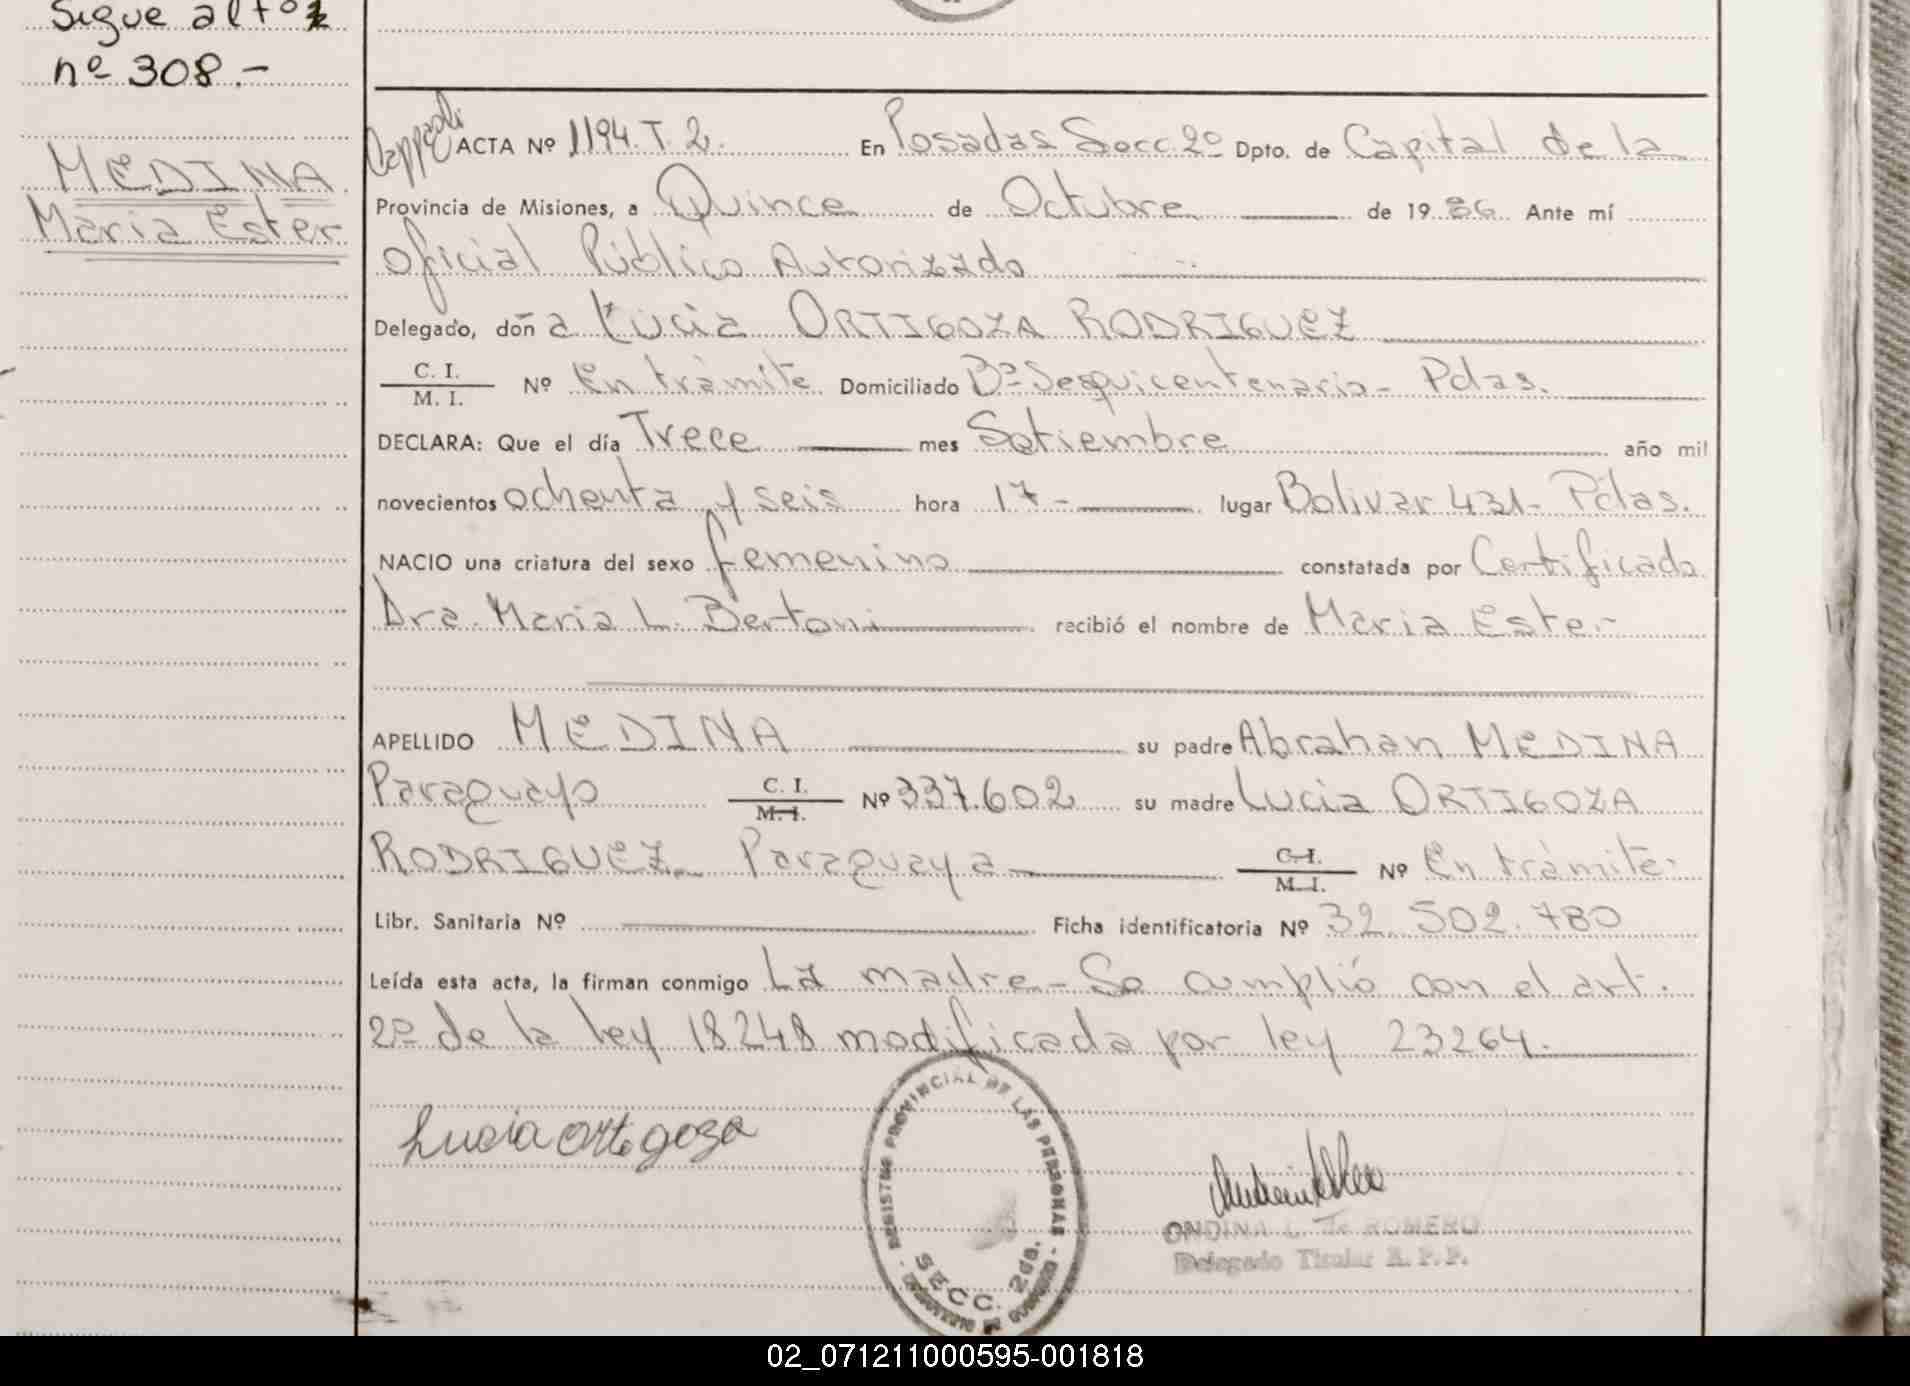 Sigue al fo
nº 308.-
MEDINA
Maria Ester
ACTA Nº 1194. T. 2. En Posadas Secc. 2º Dpto. de Capital de la
Provincia de Misiones, a Quince de Octubre de 1986 Ante mí
Oficial Público Autorizado
Delegado, doña Lucia ORTIGOZA RODRIGUEZ
C. I.
M. I. Nº En trámite Domiciliado Bº Sesquicentenario - Pdas.
DECLARA: Que el día Trece mes Setiembre año mil
novecientos ochenta y seis hora 17- lugar Bolivar 431- Pdas.
NACIO una criatura del sexo femenino constatada por Certificado
Dra. Maria L. Bertoni recibió el nombre de Maria Ester-
APELLIDO MEDINA su padre Abrahan MEDINA
Paraguayo C. I.
M. I. Nº 337.602 su madre Lucia ORTIGOZA
RODRIGUEZ Paraguaya C. I.
M. I. Nº En trámite-
Libr. Sanitaria Nº Ficha identificatoria Nº 32.502.780
Leída esta acta, la firman conmigo La madre - Se cumplió con el art.
2º de la ley 18248 modificada por ley 23264.
Lucia ortigoza
REGISTRO PROVINCIAL DE LAS PERSONAS
SECC. 2da.
ONDINA L. de ROMERO
Delegado Titular R. P. P.
02_071211000595-001818